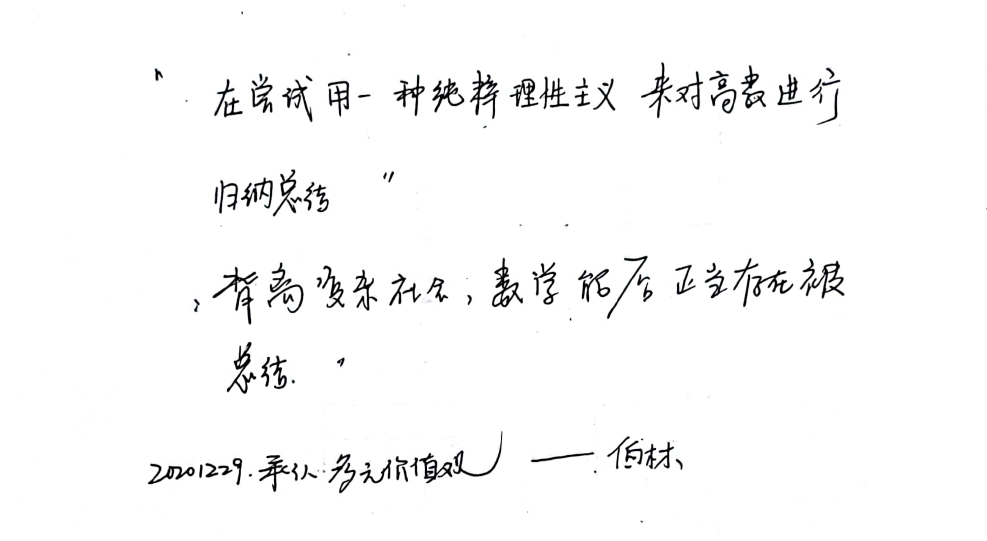 "在尝试用一种纯粹理性主义 来对高数进行
归纳总结"
,背离复杂社会,数学能否正当存在被
总结."
20201229.承认多元价值观 —— 伯林、